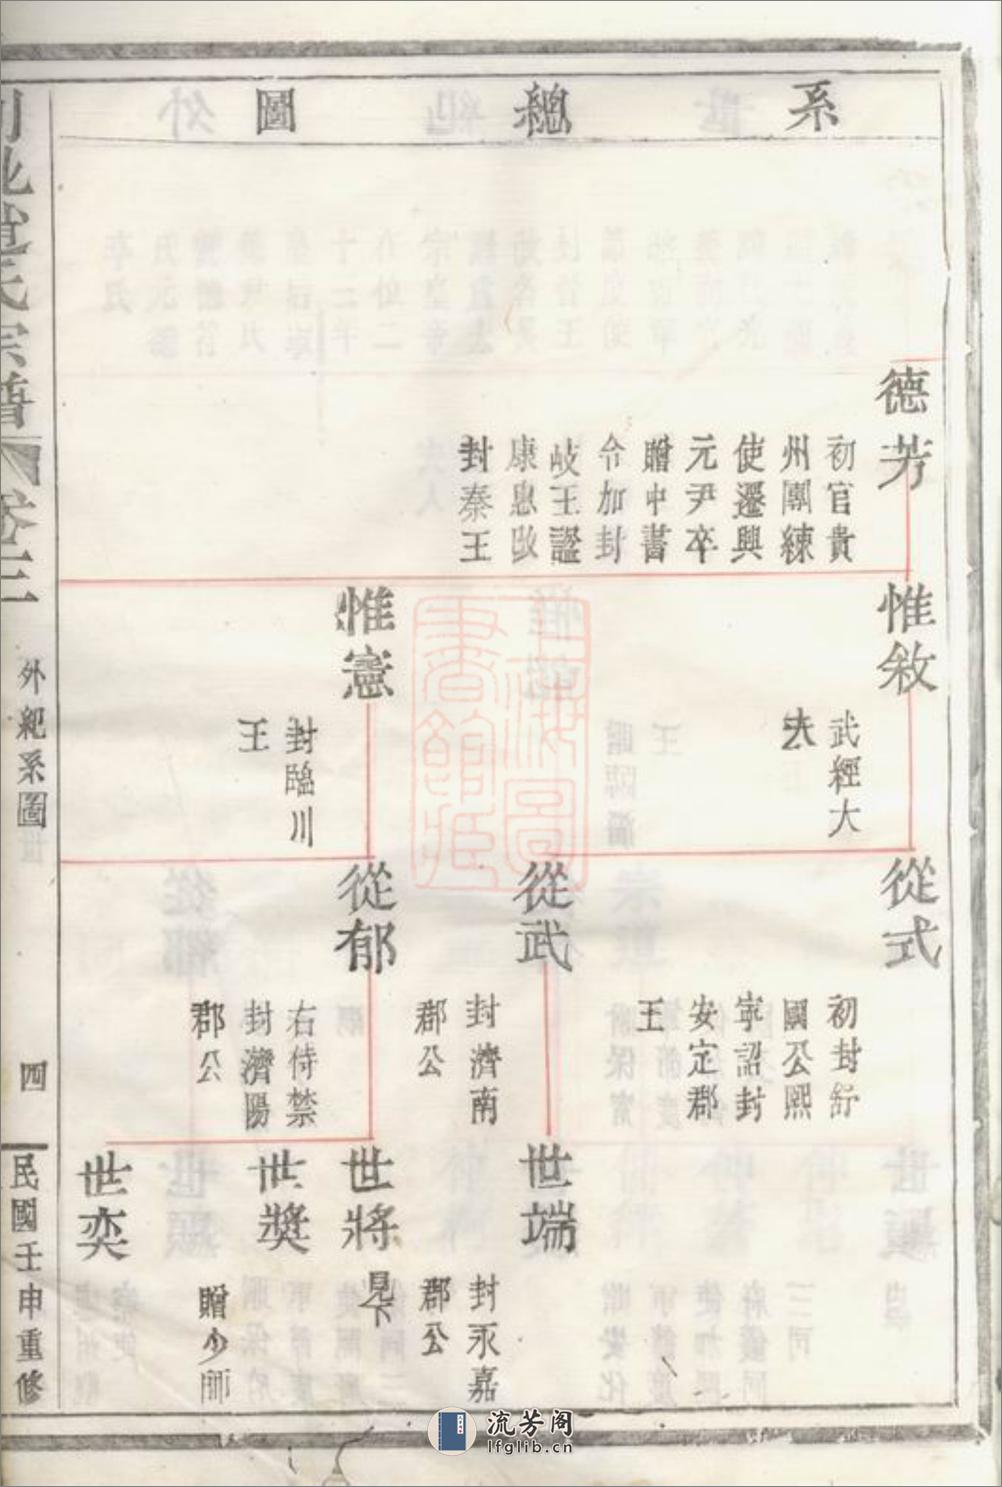 系總圖
德芳
初官貴
州團練
使遷興
元尹卒
贈中書
令加封
岐王謚
康惠改
封秦王
惟敘
武經大
夫
惟憲
封臨川
王
從式
初封舒
國公熙
寧詔封
安定郡
王
從武
封濟南
郡公
從郁
右侍禁
封濟陽
郡公
世端
封永嘉
郡公
世將
見下
世獎
贈少師
世奕
趙氏宗譜
卷二
外紀系圖
四
民國壬申重修
上海圖書館藏
流芳阁
lfglib.cn